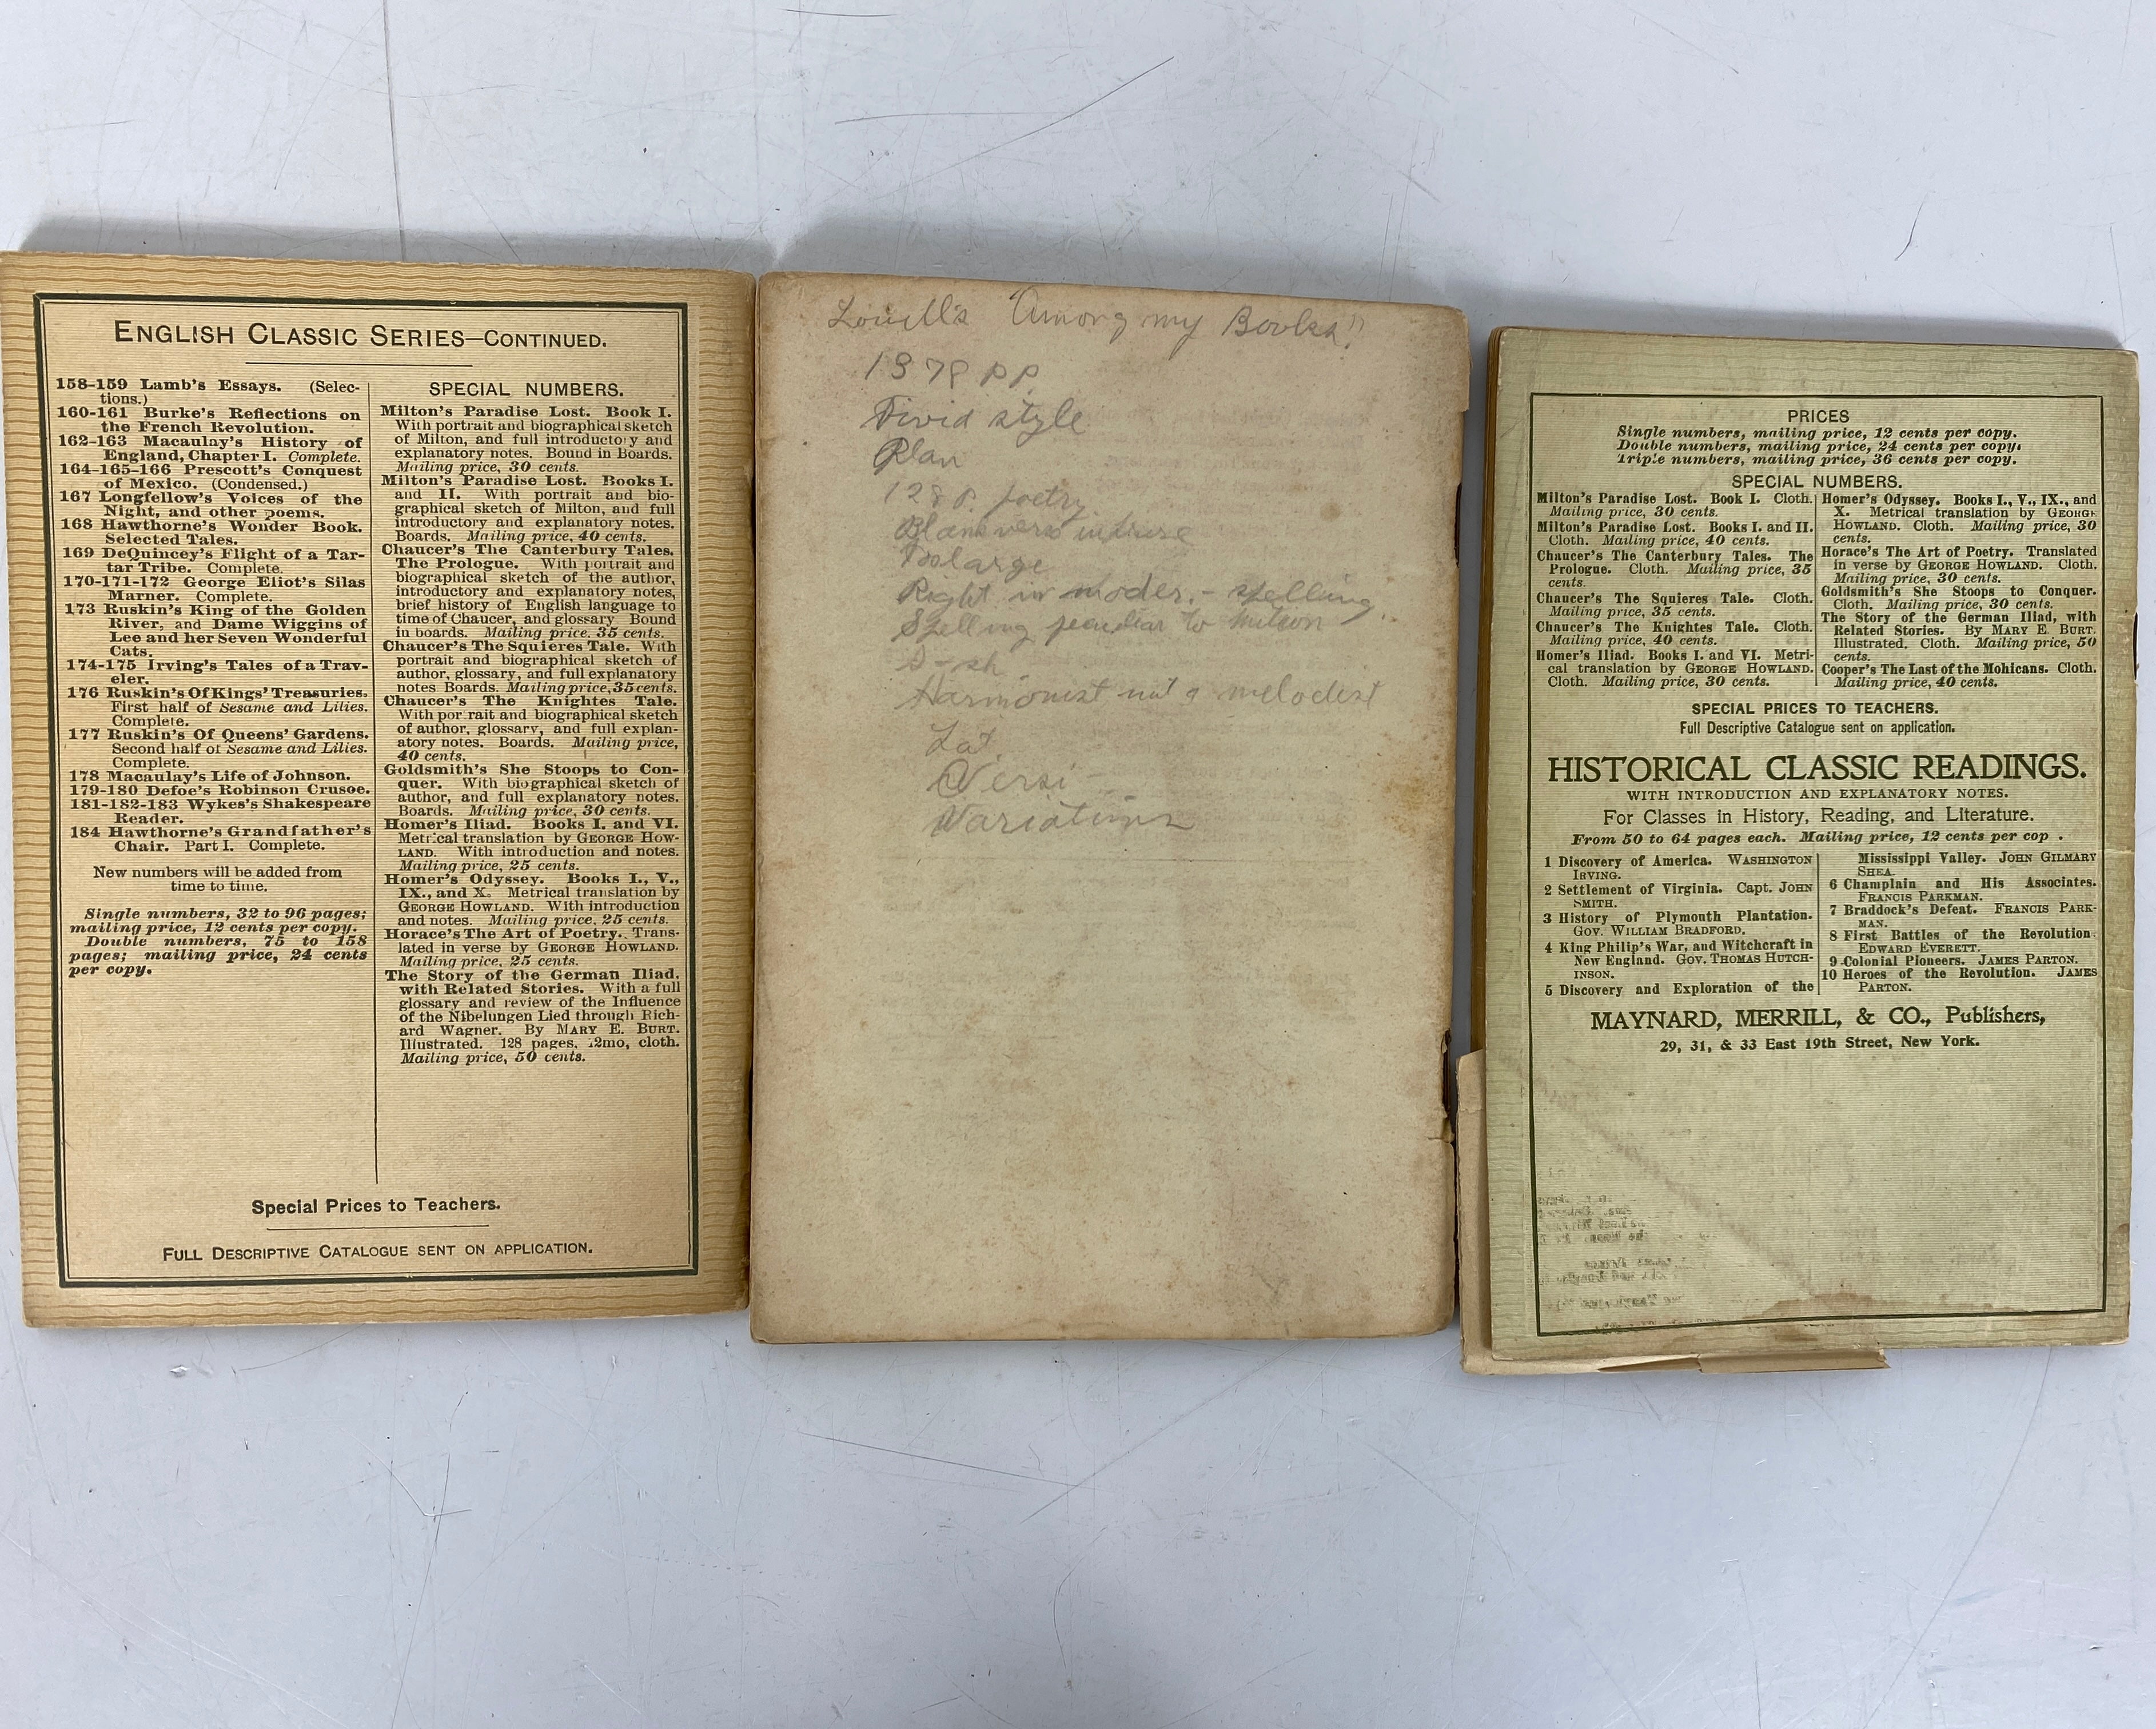 ENGLISH CLASSIC SERIES—CONTINUED.
158-159 Lamb's Essays. (Selec-
tions.)
160-161 Burke's Reflections on
the French Revolution.
162-163 Macaulay's History of
England, Chapter I. Complete.
164-165-166 Prescott's Conquest
of Mexico. (Condensed.)
167 Longfellow's Voices of the
Night, and other poems.
168 Hawthorne's Wonder Book.
Selected Tales.
169 DeQuincey's Flight of a Tar-
tar Tribe. Complete.
170-171-172 George Eliot's Silas
Marner. Complete.
173 Ruskin's King of the Golden
River, and Dame Wiggins of
Lee and her Seven Wonderful
Cats.
174-175 Irving's Tales of a Trav-
eler.
176 Ruskin's Of Kings' Treasuries.
First half of Sesame and Lilies.
Complete.
177 Ruskin's Of Queens' Gardens.
Second half of Sesame and Lilies.
Complete.
178 Macaulay's Life of Johnson.
179-180 Defoe's Robinson Crusoe.
181-182-183 Wykes's Shakespeare
Reader.
184 Hawthorne's Grandfather's
Chair. Part I. Complete.
New numbers will be added from
time to time.
Single numbers, 32 to 96 pages;
mailing price, 12 cents per copy.
Double numbers, 75 to 158
pages; mailing price, 24 cents
per copy.
SPECIAL NUMBERS.
Milton's Paradise Lost. Book I.
With portrait and biographical sketch
of Milton, and full introductory and
explanatory notes. Bound in Boards.
Mailing price, 30 cents.
Milton's Paradise Lost. Books I.
and II. With portrait and bio-
graphical sketch of Milton, and full
introductory and explanatory notes.
Boards. Mailing price, 40 cents.
Chaucer's The Canterbury Tales.
The Prologue. With portrait and
biographical sketch of the author,
introductory and explanatory notes,
brief history of English language to
time of Chaucer, and glossary Bound
in boards. Mailing price. 35 cents.
Chaucer's The Squieres Tale. With
portrait and biographical sketch of
author, glossary, and full explanatory
notes Boards. Mailing price, 35 cents.
Chaucer's The Knightes Tale.
With portrait and biographical sketch
of author, glossary, and full explan-
atory notes. Boards. Mailing price,
40 cents.
Goldsmith's She Stoops to Con-
quer. With biographical sketch of
author, and full explanatory notes.
Boards. Mailing price, 30 cents.
Homer's Iliad. Books I. and VI.
Metrical translation by GEORGE HOW-
LAND. With introduction and notes.
Mailing price, 25 cents.
Homer's Odyssey. Books I., V.,
IX., and X. Metrical translation by
GEORGE HOWLAND. With introduction
and notes. Mailing price. 25 cents.
Horace's The Art of Poetry. Trans-
lated in verse by GEORGE HOWLAND.
Mailing price, 25 cents.
The Story of the German Iliad,
with Related Stories. With a full
glossary and review of the Influence
of the Nibelungen Lied through Rich-
ard Wagner. By MARY E. BURT.
Illustrated. 128 pages. 12mo, cloth.
Mailing price, 50 cents.
Special Prices to Teachers.
FULL DESCRIPTIVE CATALOGUE SENT ON APPLICATION.
Lowell's "Among my Books"
1378 pp
Vivid style
Plan
128 p. poetry
Blank verse
Too large
Right in moder. - spelling.
Spelling peculiar to Milton
S - sh
Harmonist not a melodist
Lat.
Versi -
Variations
PRICES
Single numbers, mailing price, 12 cents per copy.
Double numbers, mailing price, 24 cents per copy.
Triple numbers, mailing price, 36 cents per copy.
SPECIAL NUMBERS.
Milton's Paradise Lost. Book I. Cloth.
Mailing price, 30 cents.
Milton's Paradise Lost. Books I. and II.
Cloth. Mailing price, 40 cents.
Chaucer's The Canterbury Tales. The
Prologue. Cloth. Mailing price, 35
cents.
Chaucer's The Squieres Tale. Cloth.
Mailing price, 35 cents.
Chaucer's The Knightes Tale. Cloth.
Mailing price, 40 cents.
Homer's Iliad. Books I. and VI. Metri-
cal translation by GEORGE HOWLAND.
Cloth. Mailing price, 30 cents.
Homer's Odyssey. Books I., V., IX., and
X. Metrical translation by GEORGE
HOWLAND. Cloth. Mailing price, 30
cents.
Horace's The Art of Poetry. Translated
in verse by GEORGE HOWLAND. Cloth.
Mailing price, 30 cents.
Goldsmith's She Stoops to Conquer.
Cloth. Mailing price, 30 cents.
The Story of the German Iliad, with
Related Stories. By MARY E. BURT.
Illustrated. Cloth. Mailing price, 50
cents.
Cooper's The Last of the Mohicans. Cloth.
Mailing price, 40 cents.
SPECIAL PRICES TO TEACHERS.
Full Descriptive Catalogue sent on application.
HISTORICAL CLASSIC READINGS.
WITH INTRODUCTION AND EXPLANATORY NOTES.
For Classes in History, Reading, and Literature.
From 50 to 64 pages each. Mailing price, 12 cents per cop .
1 Discovery of America. WASHINGTON
IRVING.
2 Settlement of Virginia. Capt. JOHN
SMITH.
3 History of Plymouth Plantation.
Gov. WILLIAM BRADFORD.
4 King Philip's War, and Witchcraft in
New England. Gov. THOMAS HUTCH-
INSON.
5 Discovery and Exploration of the
Mississippi Valley. JOHN GILMARY
SHEA.
6 Champlain and His Associates.
FRANCIS PARKMAN.
7 Braddock's Defeat. FRANCIS PARK-
MAN.
8 First Battles of the Revolution.
EDWARD EVERETT.
9 Colonial Pioneers. JAMES PARTON.
10 Heroes of the Revolution. JAMES
PARTON.
MAYNARD, MERRILL, & CO., Publishers,
29, 31, & 33 East 19th Street, New York.